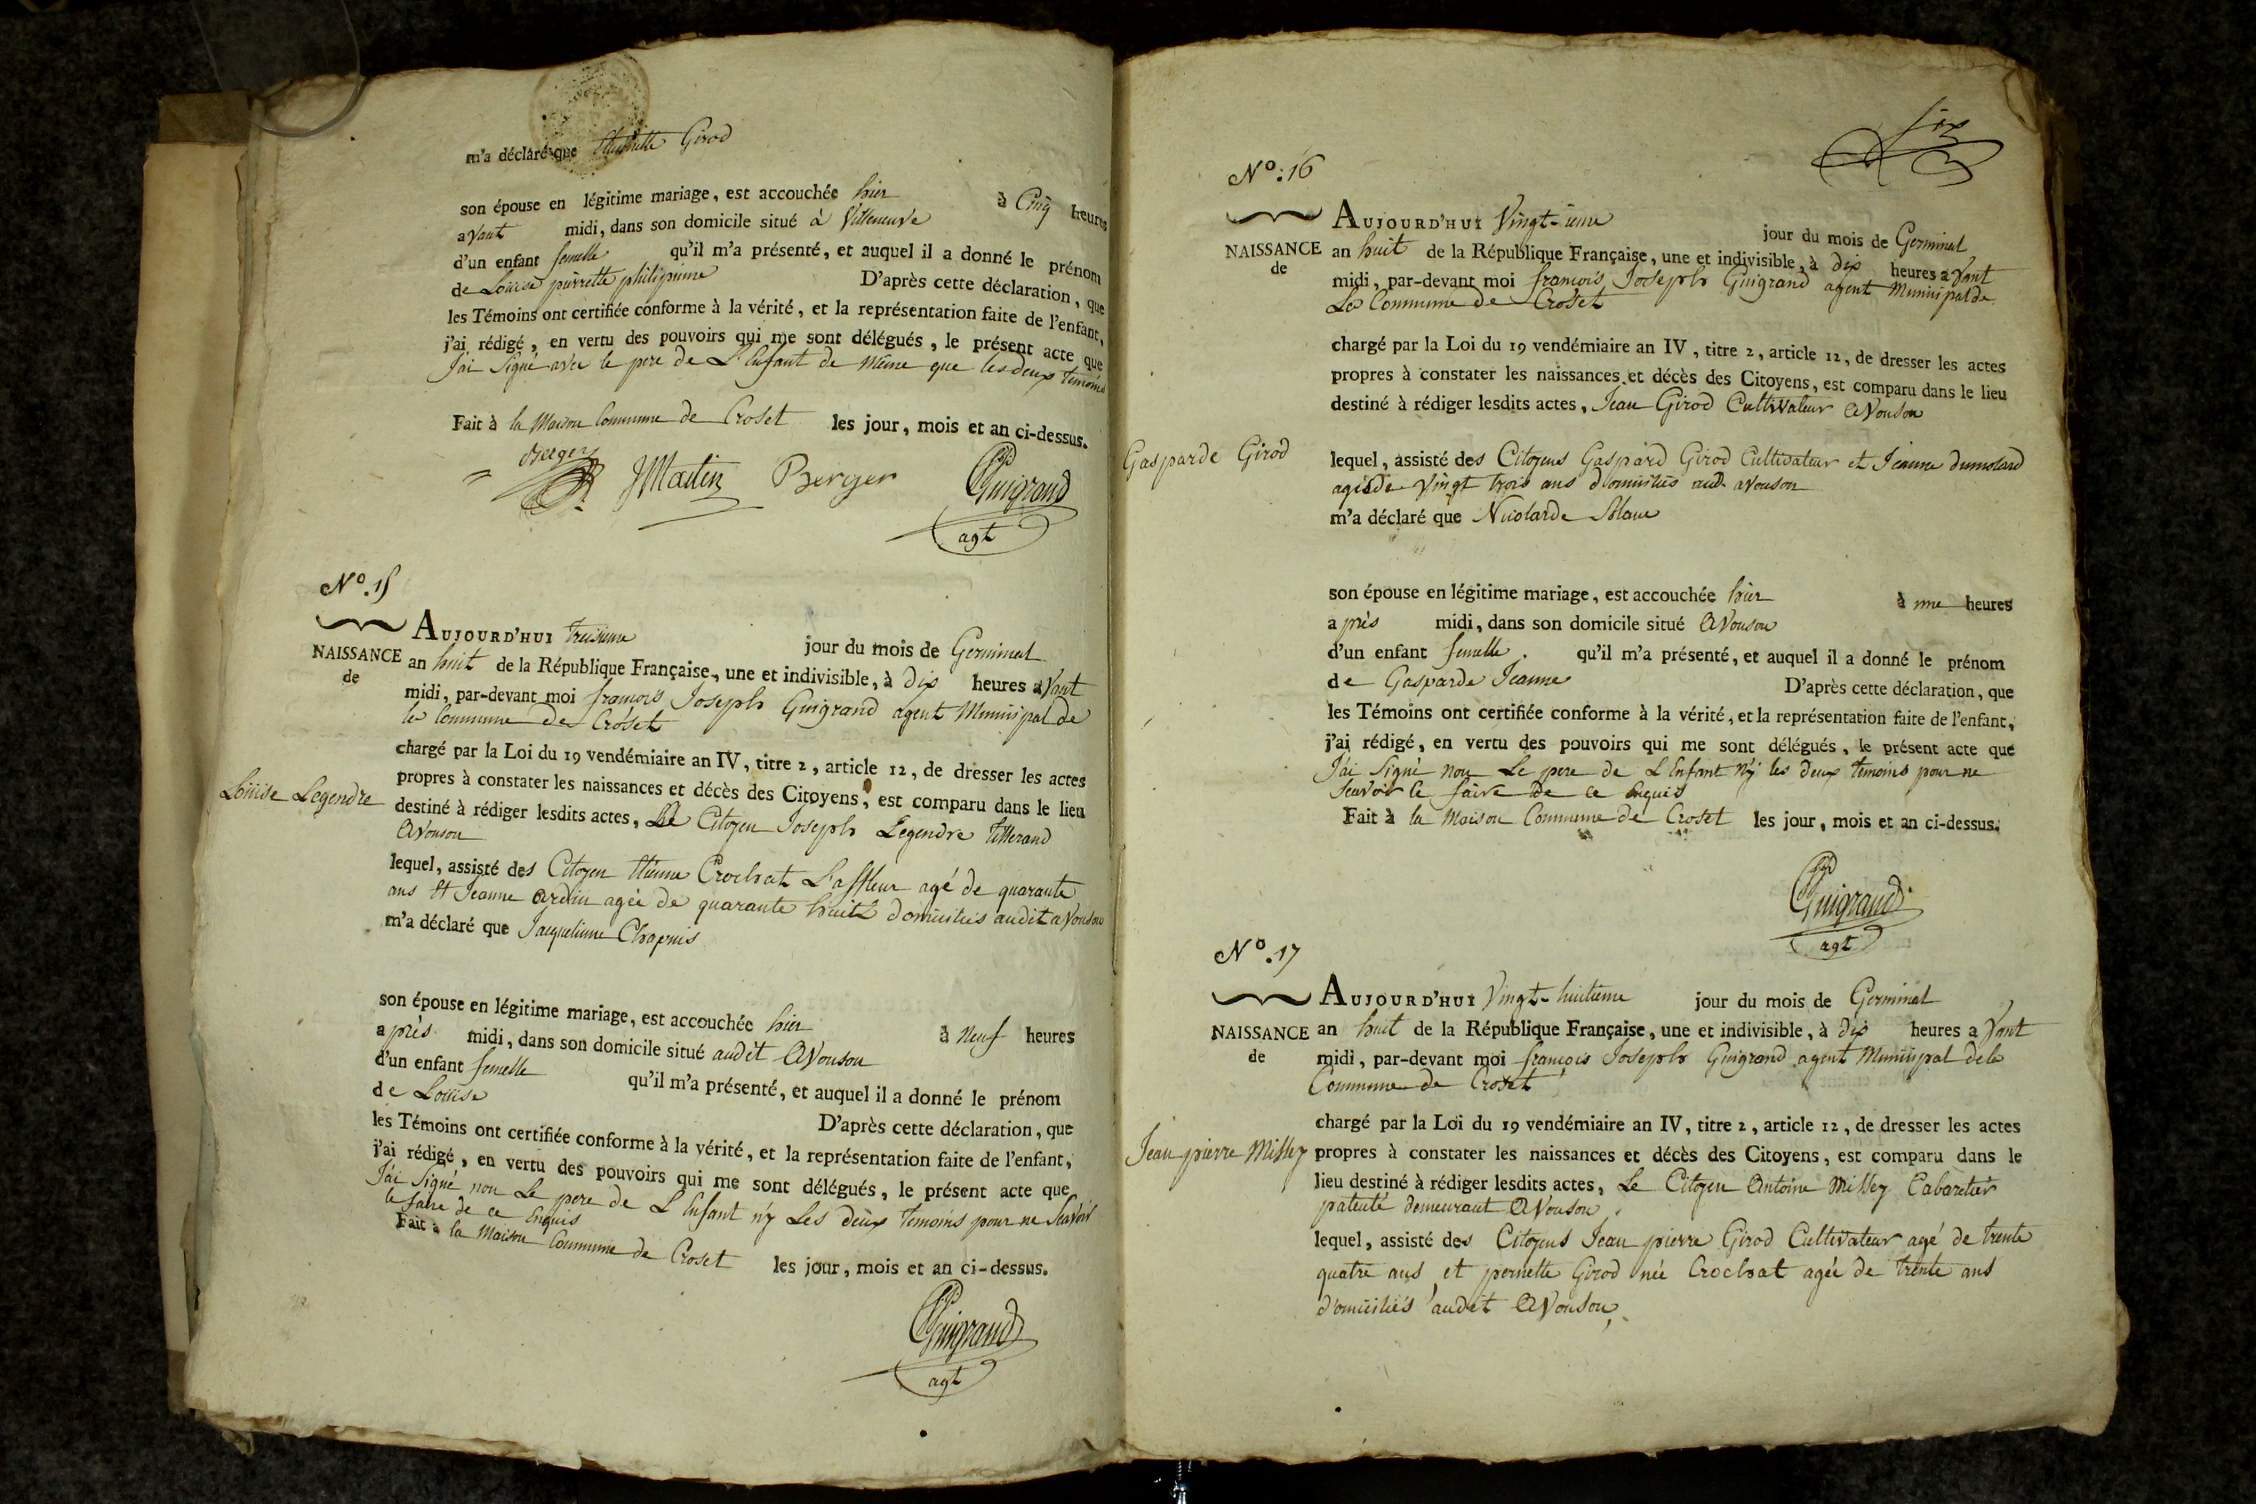 m'a déclaré que Girod
son épouse en légitime mariage, est accouchée hier à Cinq heures
avant midi, dans son domicile situé à Villeneuve
d'un enfant femelle qu'il m'a présenté, et auquel il a donné le prénom
de Louise pierrette philipinne D'après cette déclaration, que
les Témoins ont certifiée conforme à la vérité, et la représentation faite de l'enfant,
j'ai rédigé, en vertu des pouvoirs qui me sont délégués, le présent acte que
J'ai Signé avec le pere de L'Enfant de meme que les deux temoins
Fait à la Maison Commune de Croset les jour, mois et an ci-dessus.
Berger JMartin Berger Guigrand
agt
N.º 15
AUJOURD'HUI treisieme jour du mois de Germinal
NAISSANCE an huit de la République Française, une et indivisible, à dix heures avant
de
midi, par-devant moi françois Joseph Guigrand agent Municipal de
la Commune de Croset
chargé par la Loi du 19 vendémiaire an IV, titre 2, article 12, de dresser les actes
propres à constater les naissances et décès des Citoyens, est comparu dans le lieu
Louise Legendre
destiné à rédiger lesdits actes, Le Citoyen Joseph Legendre titterand
avouson
lequel, assisté des Citoyen Etienne Crochat Laffleur agé de quarante
ans et Jeanne ardin agée de quarante huit domiciliés audit avouson
m'a déclaré que Jacquelinne Chapuis
son épouse en légitime mariage, est accouchée hier à neuf heures
après midi, dans son domicile situé audit avouson
d'un enfant femelle qu'il m'a présenté, et auquel il a donné le prénom
de Louise D'après cette déclaration, que
les Témoins ont certifiée conforme à la vérité, et la représentation faite de l'enfant,
j'ai rédigé, en vertu des pouvoirs qui me sont délégués, le présent acte que
J'ai Signé non Le pere de L'Enfant n'y Les deux temoins pour ne Scavoir
le faire de ce Enquis
Fait à la Maison Commune de Croset les jour, mois et an ci-dessus.
Guigrand
agt
six
Nº. 16
AUJOURD'HUI Vingt-ieme jour du mois de Germinal
NAISSANCE an huit de la République Française, une et indivisible, à dix heures avant
de
midi, par-devant moi françois Joseph Guigrand agent Municipal de
La Commune de Croset
chargé par la Loi du 19 vendémiaire an IV, titre 2, article 12, de dresser les actes
propres à constater les naissances et décès des Citoyens, est comparu dans le lieu
destiné à rédiger lesdits actes, Jean Girod Cultivateur avouson
Gasparde Girod
lequel, assisté des Citoyens Gaspard Girod Cultivateur et Jeanne dumolard
agés de Vingt trois ans domiciliés aud. avouson
m'a déclaré que Nicolarde Blanc
son épouse en légitime mariage, est accouchée hier à une heures
après midi, dans son domicile situé avouson
d'un enfant femelle. qu'il m'a présenté, et auquel il a donné le prénom
de Gasparde Jeanne D'après cette déclaration, que
les Témoins ont certifiée conforme à la vérité, et la représentation faite de l'enfant,
j'ai rédigé, en vertu des pouvoirs qui me sont délégués, le présent acte que
J'ai Signé non Le pere de L'Enfant n'y les deux temoins pour ne
Scavoir le faire de ce Enquis
Fait à la Maison Commune de Croset les jour, mois et an ci-dessus.
Guigrand
agt
Nº. 17
AUJOURD'HUI Vingt-huitieme jour du mois de Germinal
NAISSANCE an huit de la République Française, une et indivisible, à dix heures avant
de
midi, par-devant moi françois Joseph Guigrand agent Municipal dela
Commune de Croset
chargé par la Loi du 19 vendémiaire an IV, titre 2, article 12, de dresser les actes
Jean pierre Missey
propres à constater les naissances et décès des Citoyens, est comparu dans le
lieu destiné à rédiger lesdits actes, Le Citoyen Antoine Missey Cabaretier
patenté demeurant avouson
lequel, assisté des Citoyens Jean pierre Girod Cultivateur agé de trente
quatre ans et pernette Girod née Crochat agée de trente ans
domiciliés audit avouson